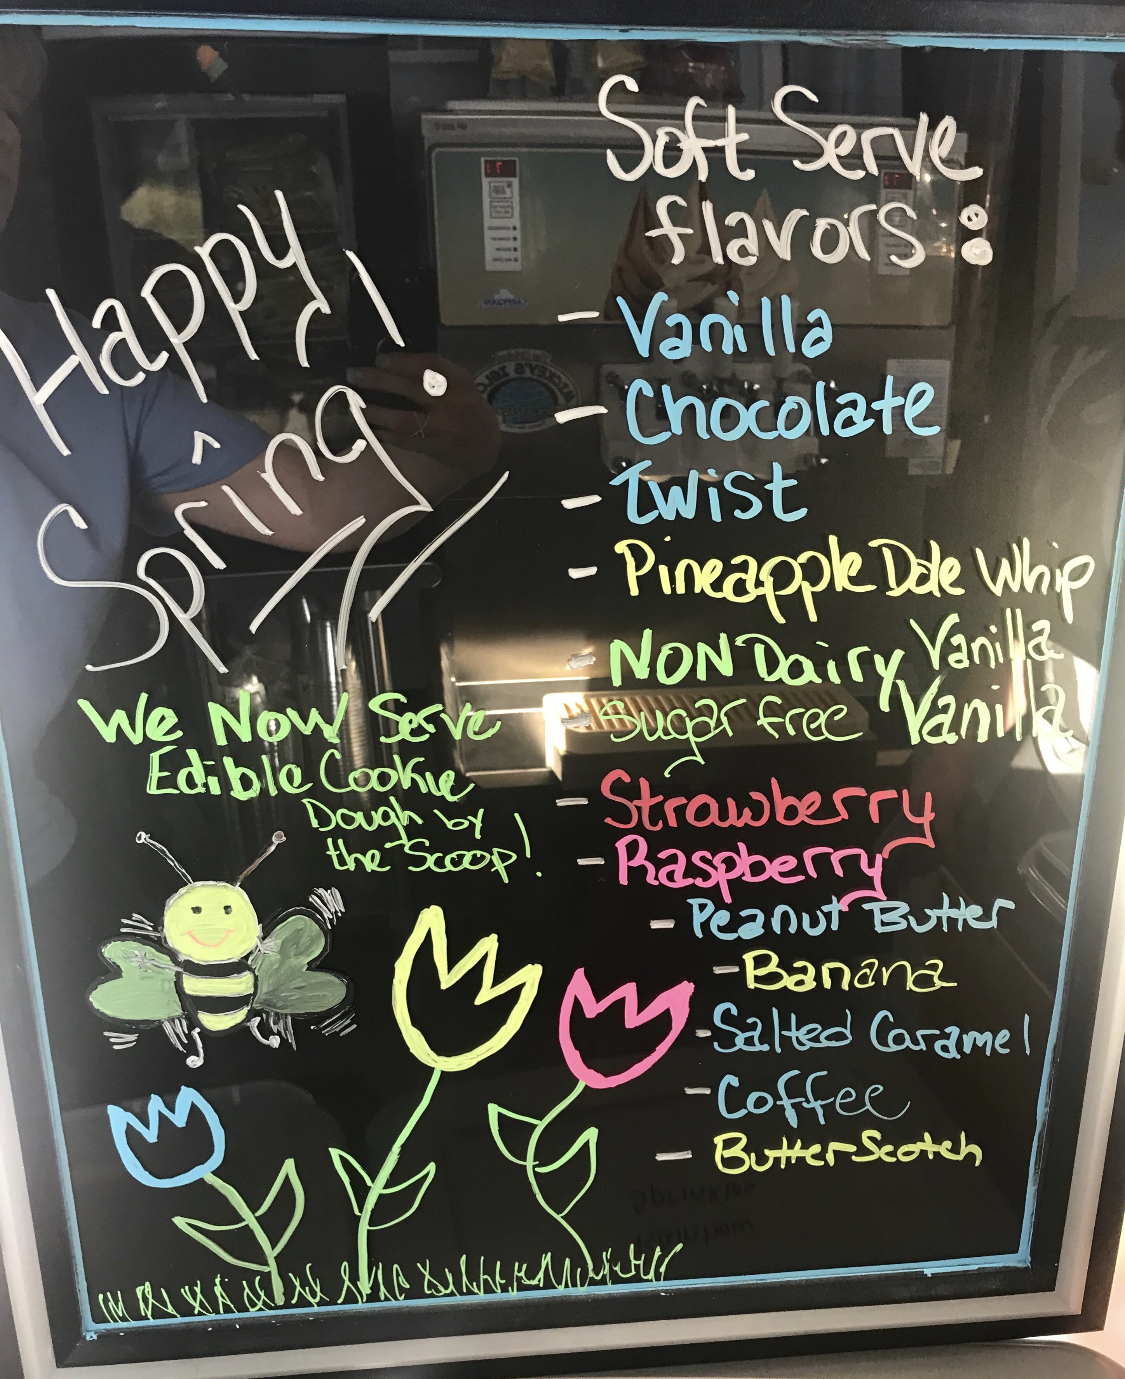 Happy
Spring!
We Now Serve
Edible Cookie
Dough by
the Scoop!
Soft Serve
flavors:
- Vanilla
- Chocolate
- Twist
- Pineapple Dole Whip
- NON Dairy Vanilla
- Sugar free Vanilla
- Strawberry
- Raspberry
- Peanut Butter
- Banana
- Salted Caramel
- Coffee
- ButterScotch